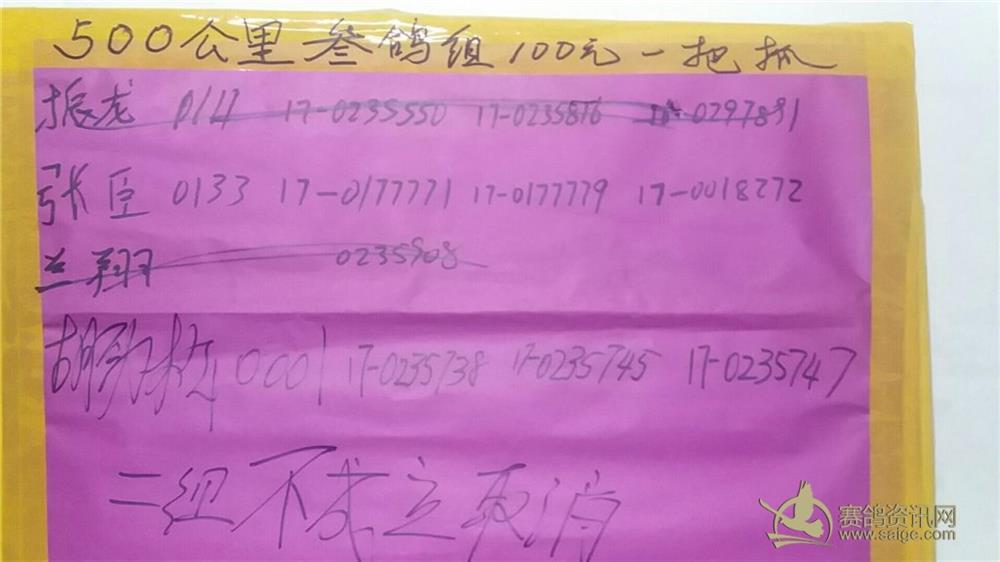 500公里叁鸽组100元一把抓
振龙 0114 17-0235550 17-0235876 0297891
张臣 0133 17-0177771 17-0177779 17-0018272
兰翔 0235908
胡 0001 17-0235738 17-0235745 17-0235747
二组不成立取消
赛鸽资讯网
www.saige.com